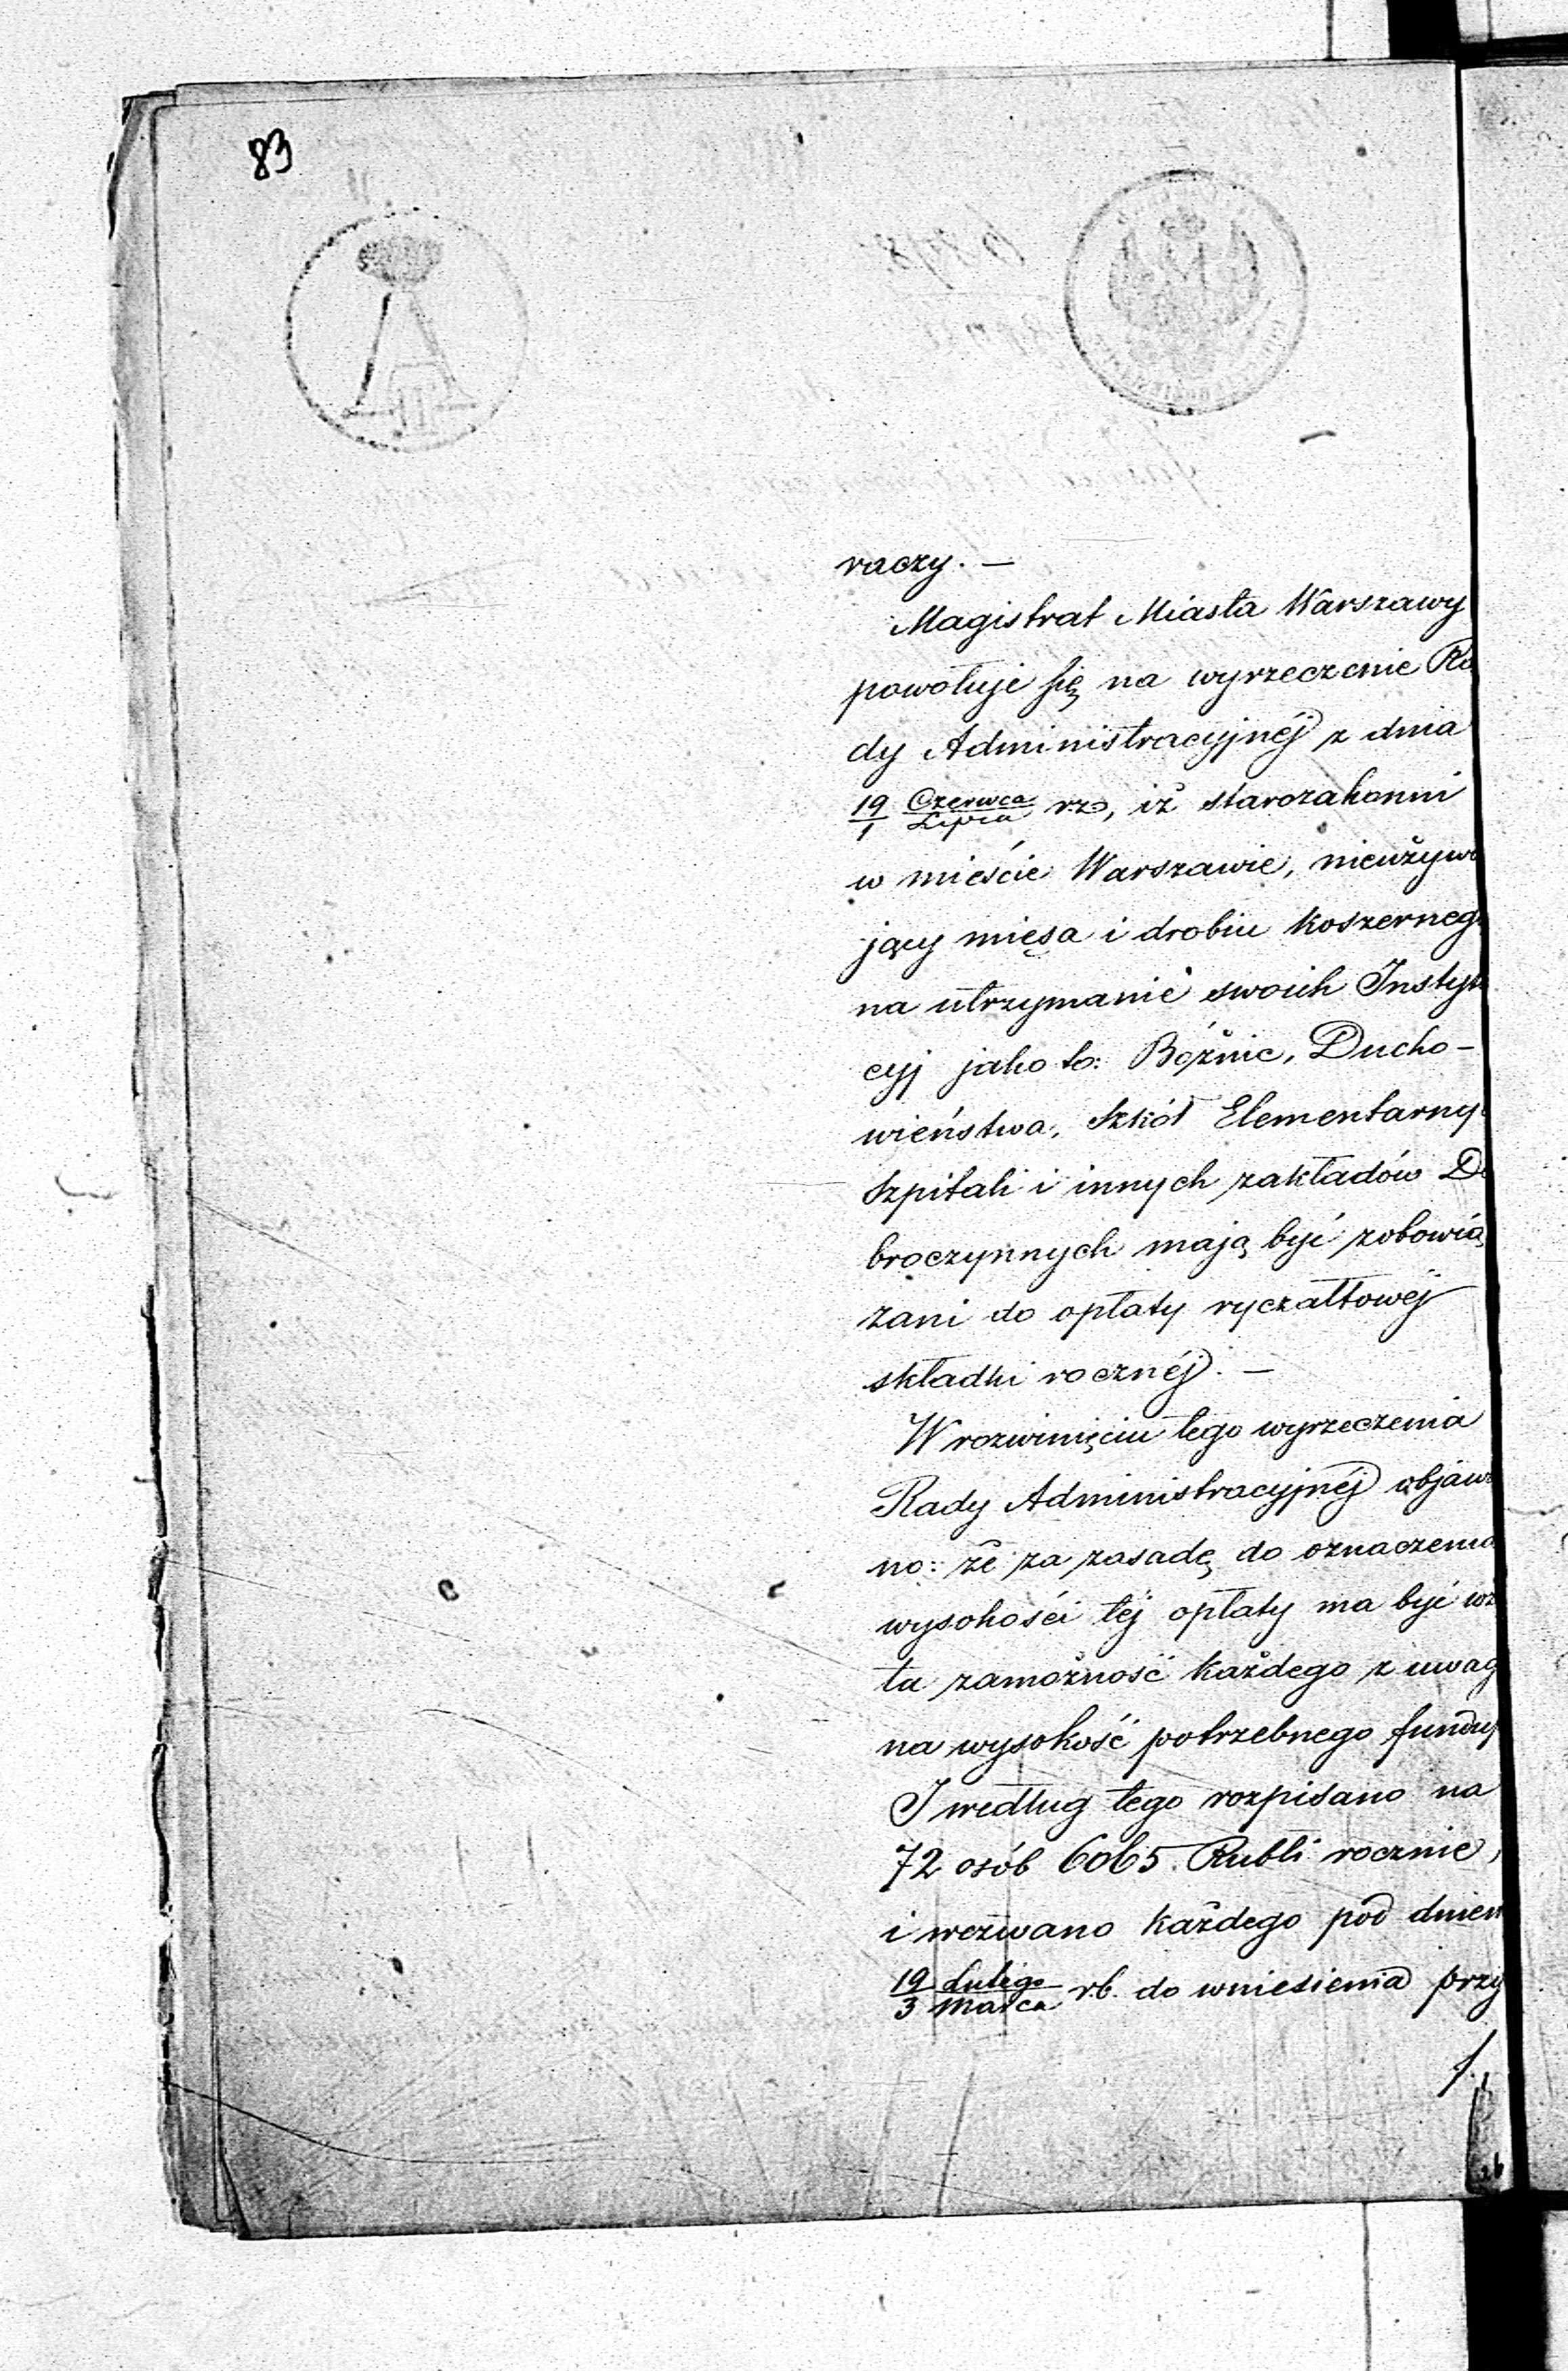 83
raczy. —
Magistrat Miasta Warszawy
powołuje się na wyrzeczenie Ra
dy Administracyjnéj z dnia
19/1 Czerwca/Lipca rz, iż starozakonni
w mieście Warszawie, nieużywa
jący mięsa i drobiu koszernego
na utrzymanie swoich Instytu
cyj jako to: Bóżnic, Ducho-
wieństwa, Szkół Elementarnych
Szpitali i innych zakładów Do
broczynnych mają być zobowią
zani do opłaty ryczałtowéj
składki rocznéj. —
W rozwinięciu tego wyrzeczenia
Rady Administracyjnéj objawio
no: że za zasadę do oznaczenia
wysokości téj opłaty ma być wzię
ta zamożność każdego z uwagi
na wysokość potrzebnego fundusz
I według tego rozpisano na
72 osób 6065 Rubli rocznie,
i wezwano każdego pod dniem
19/3 Lutego/Marca rb. do wniesienia przy